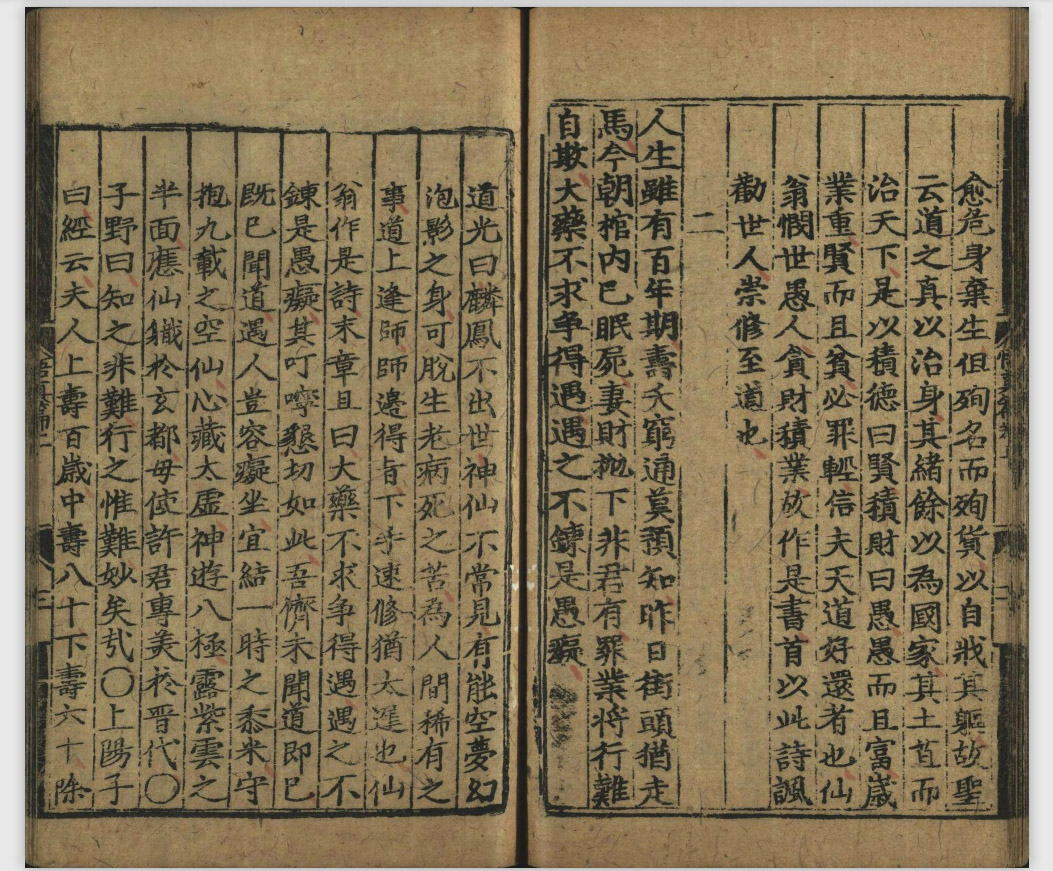 愈危身棄生但殉名而殉貨以自戕其軀故聖
云道之真以治身其緒餘以為國家其土苴而
治天下是以積德曰賢積財曰愚愚而且富歲
業重賢而且貧必罪輕信夫天道好還者也仙
翁憫世愚人貪財積業故作是書首以此詩諷
勸世人崇修至道也
二
人生雖有百年期壽夭窮通莫預知昨日街頭猶走
馬今朝棺內已眠屍妻財抛下非君有罪業將行難
自欺大藥不求爭得遇遇之不鍊是愚癡
道光曰麟鳳不出世神仙不常見有能空夢幻
泡影之身可脫生老病死之苦為人間稀有之
事道上逢師師邊得旨下手速修猶太遲也仙
翁作是詩末章且曰大藥不求爭得遇遇之不
鍊是愚癡其叮嚀懇切如此吾儕未聞道即已
既已聞道遇人豈容癡坐宜結一時之黍米守
抱九載之空仙心藏太虛神遊八極靄紫雲之
半面應仙職於玄都毋使許君專美於晉代〇
子野曰知之非難行之惟難妙矣㢤〇上陽子
曰經云夫人上壽百歲中壽八十下壽六十除